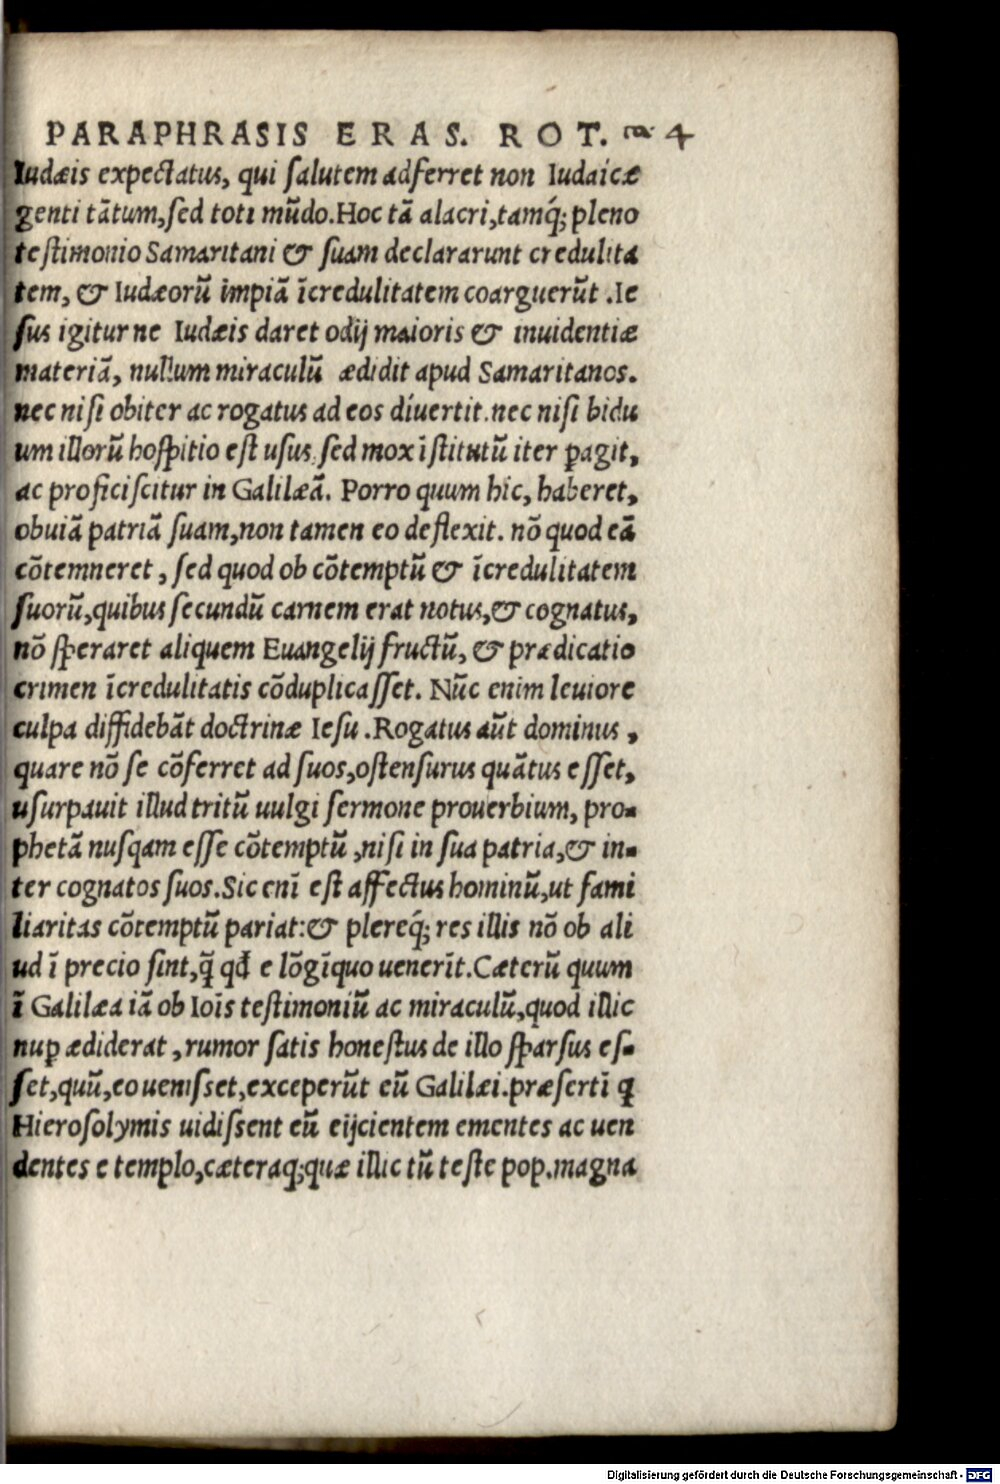 PARAPHRASIS ERAS. ROT. ca. 4
Iudæis expectatus, qui ſalutem adferret non Iudaicæ
genti tātum,ſed toti mūdo.Hoc tā alacri,tamq́; pleno
teſtimonio Samaritani & ſuam declararunt credulita
tem, & Iudæorū impiā īcredulitatem coarguerūt .Ie
ſus igitur ne Iudæis daret odij maioris & inuidentiæ
materiā, nullum miraculū ædidit apud Samaritanos.
nec niſi obiter ac rogatus ad eos diuertit.nec niſi bidu
um illorū hoſpitio eſt uſus.ſed mox īſtitutū iter ꝑagit,
ac proficiſcitur in Galilæā. Porro quum hic, haberet,
obuiā patriā ſuam,non tamen eo deflexit. nō quod eā
cōtemneret, ſed quod ob cōtemptū & īcredulitatem
ſuorū,quibus ſecundū carnem erat notus,& cognatus,
nō ſperaret aliquem Euangelij fructū, & prædicatio
crimen īcredulitatis cōduplicaſſet. Nūc enim leuiore
culpa diffidebāt doctrinæ Ieſu .Rogatus aūt dominus ,
quare nō ſe cōferret ad ſuos,oſtenſurus quātus eſſet,
uſurpauit illud tritū uulgi ſermone prouerbium, pro-
phetā nuſqam eſſe cōtemptū ,niſi in ſua patria,& in-
ter cognatos ſuos.Sic enī eſt affectus hominū,ut fami
liaritas cōtemptū pariat:& plereq́; res illis nō ob ali
ud ī precio ſint,q̄ qđ e lōgīquo uenerīt.Cæterū quum
ī Galilæa iā ob Ioīs teſtimoniū ac miraculū,quod illic
nuꝑ ædiderat ,rumor ſatis honeſtus de illo ſparſus eſ-
ſet,quū,eo ueniſset,exceperūt eū Galilæi.præſertī ꝙ
Hieroſolymis uidiſsent eū eijcientem ementes ac uen
dentes e templo,cæteraq;quæ illic tū teſte pop.magna
Digitalisierung gefördert durch die Deutsche Forschungsgemeinschaft - DFG